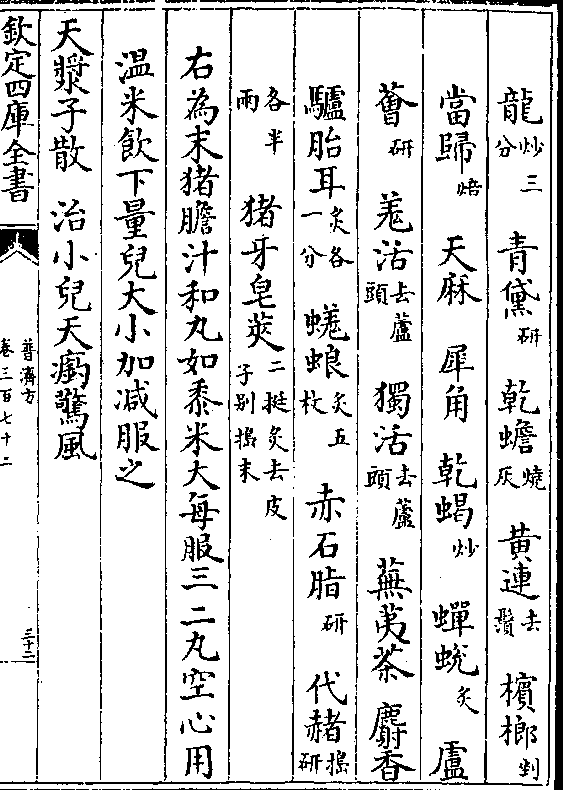 龍炒三分　青黛研　乾蟾燒灰　黄連去鬚　檳榔剉
當歸焙　天麻　犀角　乾蝎炒　蟬蛻炙　盧
薈研　羗活去蘆頭　獨活去蘆頭　蕪荑茶　麝香
驢胎耳炙各一分　蜣蜋炙五枚　赤石脂研　代赭搗研
各半兩　猪牙皂莢二挺炙去皮子别搗末
右為末猪膽汁和丸如黍米大每服三二丸空心用
温米飲下量兒大小加减服之
天漿子散　治小兒天瘹驚風
欽定四庫全書
普濟方
卷三百七十二
三十二